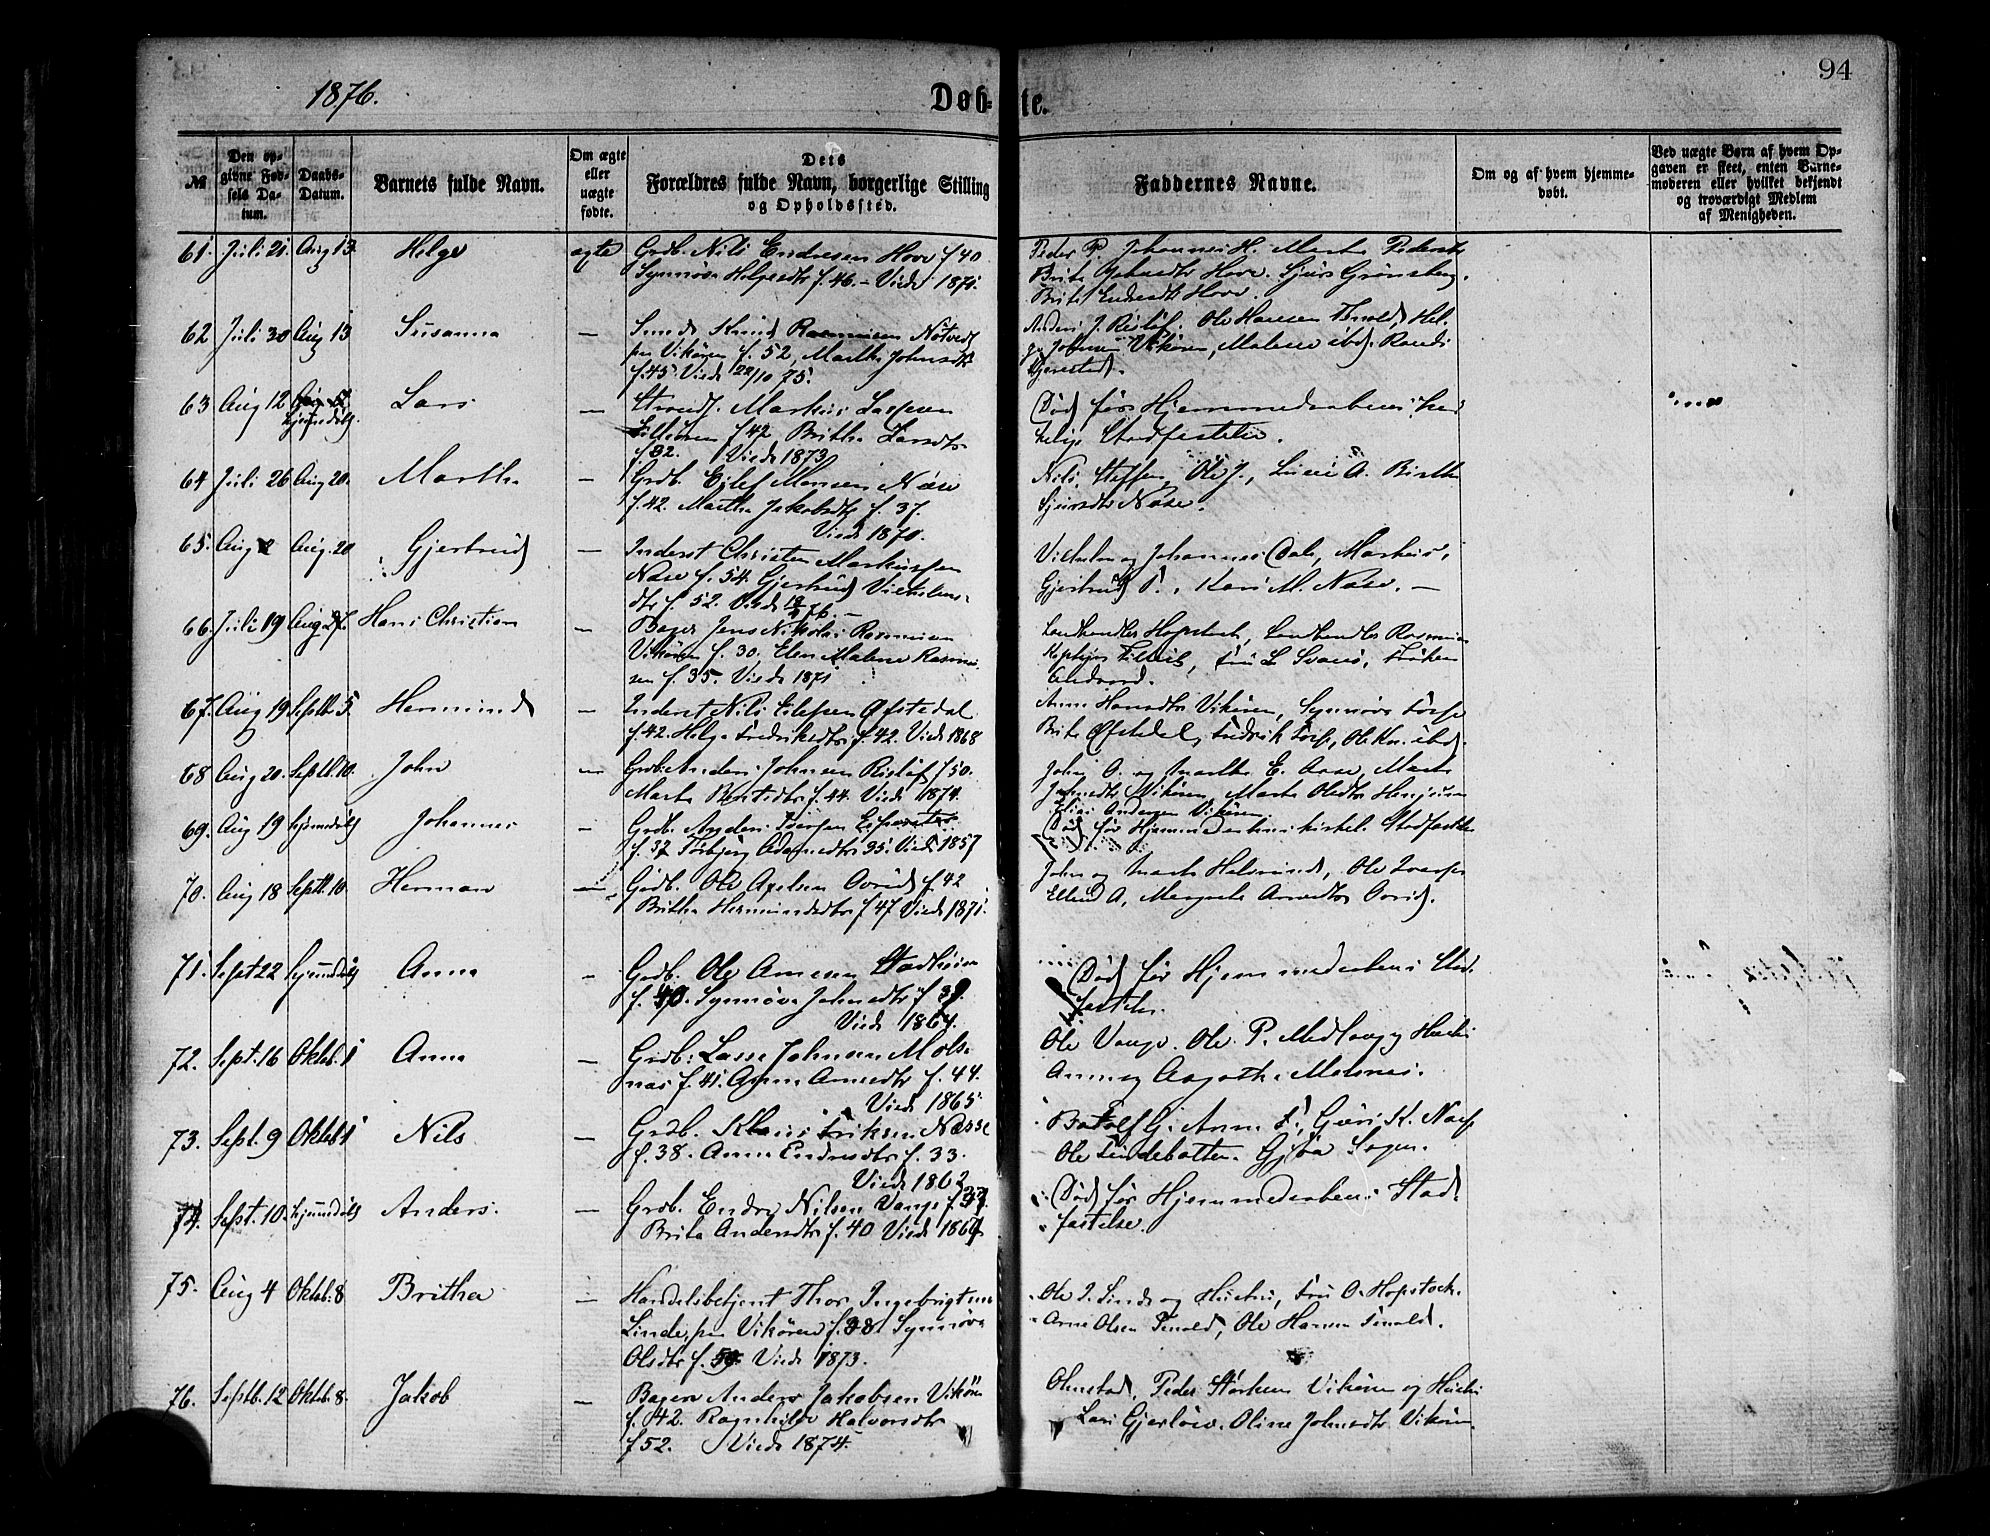 94
1876.
Døb-
te.
№
Den op-
givne Fød-
sels Da-
tum.
Daabs-
Datum.
Barnets fulde Navn.
Om ægte
eller
uægte
fødte.
Dets
Forældres fulde Navn, borgerlige Stilling
og Opholdssted.
Faddernes Navne.
Om og af hvem hjemme-
døbt.
Ved uægte Børn af hvem Op-
gaven er skeet, enten Barne-
moderen eller hvilket bekjendt
og troværdigt Medlem
af Menigheden.
61. Juli 21. Aug 13 Helge ægte Grdb. Nils Endresen Hove f 40
Synnøva Helgesdtr f. 46. – Viede 1871.
Peder P. Johannes H. Marta Pedersdtr
Brita Hove. Sjurs Grønsberg.
Brita Endresdtr Hove.
62 Juli 30 Aug 13 Susanna — Knud Rasmussen Nøtvedt
paa Vikøren f. 52, Martha Johnsdtr
f. 45. Viede 22/10 75.
Anders J. Risløf. Ole Hansen Tenold, Hel-
ge Johnsen Vikøren, Malene ibd. Randi
Gjerestad.
63 Aug 12 Lars — Strands. Markus Larssen
f 42 Britha Larsdtr
f 32. Viede 1873
Død før Hjemmedaabens kir-
kelige Stadfæstelse.
64 Juli 26 Aug 20. Martha — Grdb. Eilef Monsen Næse
f. 42. Martha Jakobsdtr f. 37.
Viede 1870.
Nils, Steffen, Ole J., A. Britha
Sjursdtr Næse.
65. Aug Aug. 20 Gjertrud — Inderst Christen Markussen
Næse f. 54. Gjertrud Vilhelms-
dtr f. 52. Viede 76. –
Vilhelm og Johannes Dale, Markus,
Gjertrud Kari M. Næse. –
66. Juli 19 Aug 27. Hans Christian — Bager Jens Nikolai Rasmussen
Vikøren f. 30, Elen Malene Rasmus-
sen f. 35. Viede 1871
Landhandler Hopstock, Landhandler Rasmussen
Fru L Svanø, Frøken
67. Aug 19 Septb. 5. Hermund — Inderst Nils Eilefsen Øfstedal
f. 42. Helga Fredriksdtr f. 42. Viede 1868
Anna Hansdtr Vikøren, Synnøva
Brita Øfstedal, Fredrik Ole Kn. ibd.
68 Aug 20. Septb. 10. John — Grdb. Anders Johnsen Risløf f 50.
Marta Bentsdtr f. 44. Viede 1874.
John O. og Martha E. Marta
Johnsdtr Vikøren, Marta Olsdtr Henjum
Elias Andersen Vikøren.
69. Aug 19 Hjemmedøbt Johannes — Grdb. Anders
f. 37 Torbjørg Adamsdtr 35. Viede 1857
Død før Hjemmedaabens kirkel. Stadfæstelse
70. Aug 18 Septb. 10. Herman — Grdb. Ole Axelsen Ovrid f. 42
Britha Hermundsdtr f 47 Viede 1871.
John og Marta Ole
Ellend A, Margreta Arnedtr Ovrid.
71. Sept 22 Hjemmedøbt Anna — Grdb. Ole Arnesen Stadheim
f. 40. Synnøva Johnsdtr f 39.
Viede 1864.
Død før Hjemmedaabens Stad-
fæstelse.
72. Sept. 16 Oktob. 1 Anna — Grdb. Lasse Johnsen Mols-
næs f. 41. Anna Arnesdtr f. 44.
Viede 1865.
Ole Vange. Ole P. Medlaug og Hustru
Anna og Aagatha Molsnes.
73. Sept. 9 Oktob 1 Nils — Grdb. Klaus Eriksen Næsse
f. 38. Anna Endresdtr f. 33.
Viede 1862
Botolf G. Anna Guri K. Næse
Ole Lindebotten. Gjøa
74. Sept. 10. Hjemmedøbt Anders. — Grdb. Endre Nilsen Vange f 37
Brita Andersdtr f. 40 Viede 1864
Død før Hjemmedaabens Stad-
fæstelse.
75. Aug 4 Oktob. 8 Britha — Handelsbetjent Thor Ingebrigtsen
Linde paa Vikøren f. 38 Synnøva
Olsdtr f. 50. Viede 1873.
Ole I. Linde og Hustru, Fru O. Hopstock.
Arne Olsen Tenold, Ole Hansen Tenold.
76. Septb. 12 Oktob. 8. Jakob — Bager Anders Jakobsen Vikøren
f. 42. Ragnhilde Halvorsdtr
f 52. Viede 1874.
Olmstad, Peder Størksen Vikøren og Hustru
Lars Gjerløw. Oline Johnsdtr Vikøren